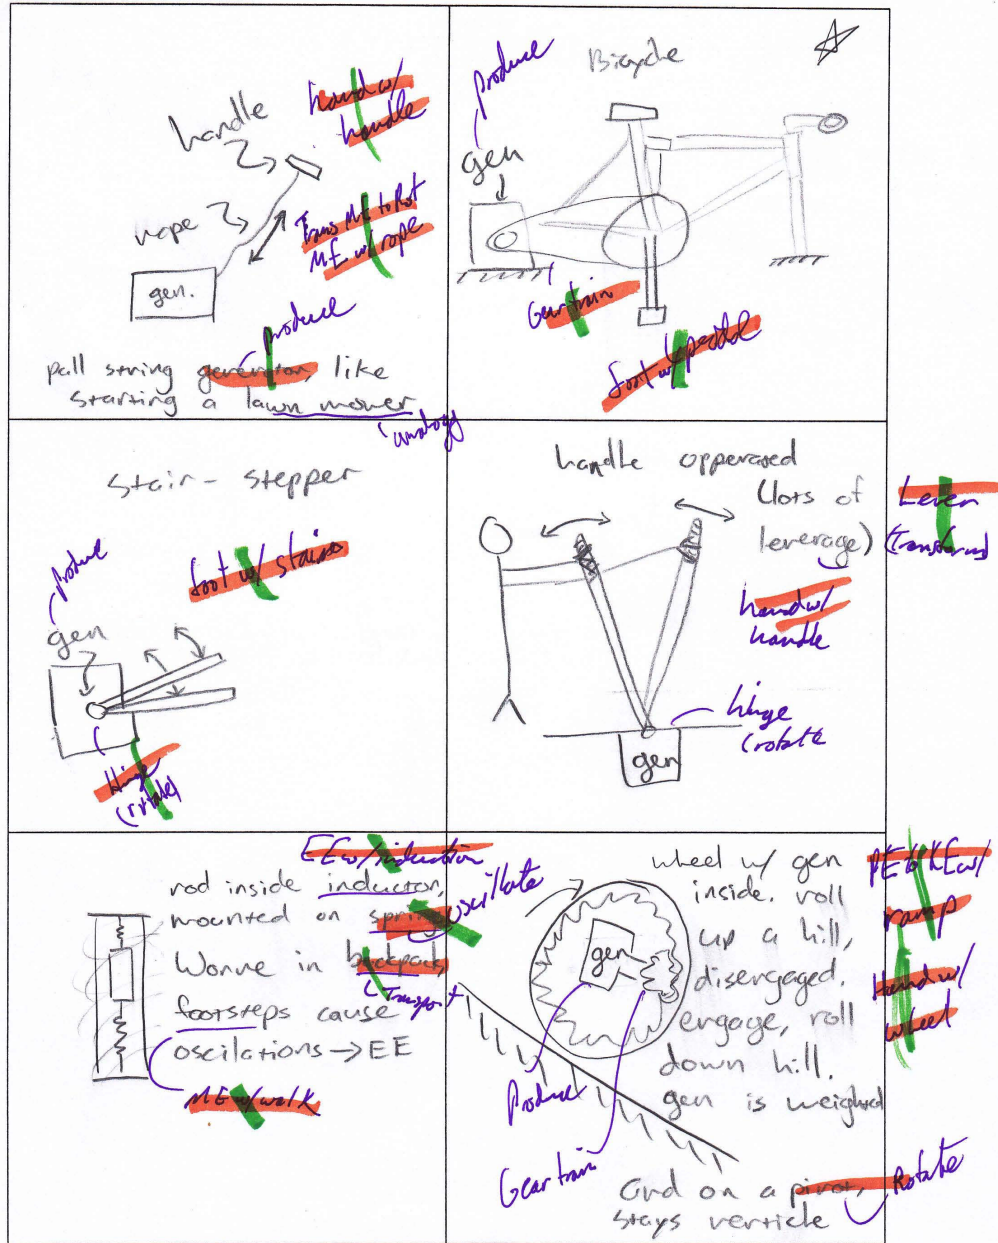 handle
hand w/
handle
rope
Trans ME to Rot
ME w/ rope
gen.
produce
pull string generator, like
starting a lawn mower
analogy
produce
Bicycle
gen
Gear train
foot w/ pedal
stair-stepper
foot w/ stairs
produce
gen
Hinge
(rotate)
handle opperated
(lots of
leverage)
Lever
(Transform)
hand w/
handle
hinge
(rotate
gen
EE w/ induction
rod inside inductor,
mounted on spring
oscillate
Worne in backpack,
(Transport
footsteps cause
oscilations → EE
ME w/ walk
wheel w/ gen
inside. roll
up a hill,
disengaged.
engage, roll
down hill.
gen is weighted
and on a pivot,
stays verticle
gen
Produce
Gear train
PE to KE w/
ramp
Hand w/
wheel
Rotate